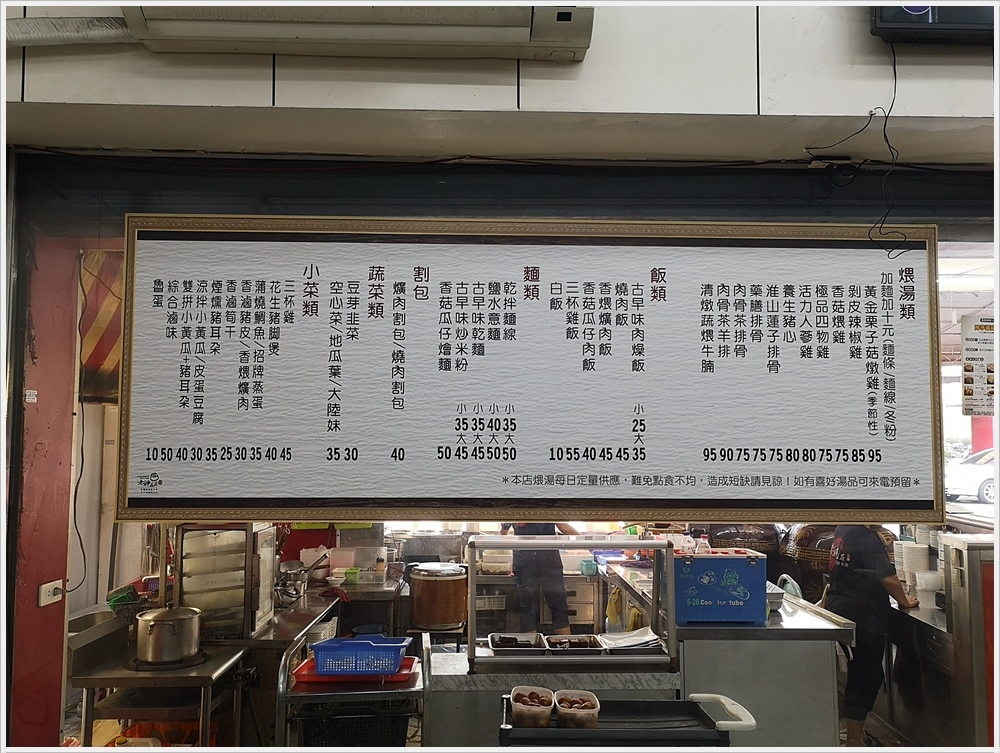 煨湯類
加麵加十元(麵條/麵線/冬粉)
黃金栗子菇燉雞(季節性) 95
剝皮辣椒雞 85
香菇煨雞 75
極品四物雞 75
活力人蔘雞 80
養生豬心 80
淮山蓮子排骨 75
藥膳排骨 75
肉骨茶排骨 75
肉骨茶羊排 90
清燉蔬煨牛腩 95
飯類
古早味肉燥飯 小25大35
燒肉飯 45
香煨爌肉飯 45
香菇瓜仔肉飯 40
三杯雞飯 55
白飯 10
麵類
乾拌麵線 小35大50
鹽水意麵 小40大50
古早味乾麵 小35大45
古早味炒米粉 小35大45
香菇瓜仔燴麵 50
割包
爌肉割包/燒肉割包 40
蔬菜類
豆芽韭菜 30
空心菜/地瓜葉/大陸妹 35
小菜類
三杯雞 45
花生豬腳煲 40
蒲燒鯛魚/招牌蒸蛋 35
香滷豬皮/香煨爌肉 30
香滷筍干 25
煙燻豬耳朵 35
涼拌小黃瓜/皮蛋豆腐 30
雙拼小黃瓜+豬耳朵 40
綜合滷味 50
魯蛋 10
*本店煨湯每日定量供應，難免點食不均，造成短缺請見諒！如有喜好湯品可來電預留*
S-28 Cool ice tube